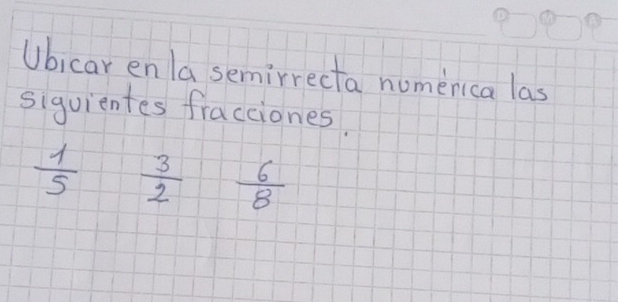 Ubicar en la semirrecta númerica las
siguientes fracciones.
1/5 3/2 6/8